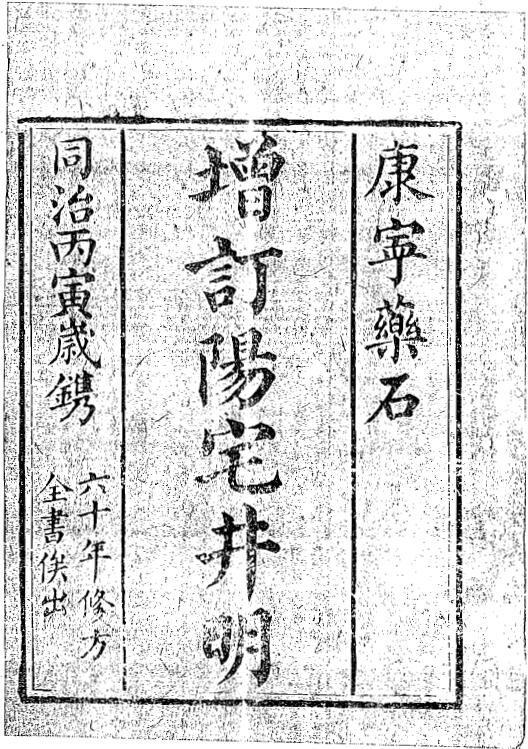 康寧藥石
增訂陽宅井明
同治丙寅歲鐫
六十年修方
全書俟出